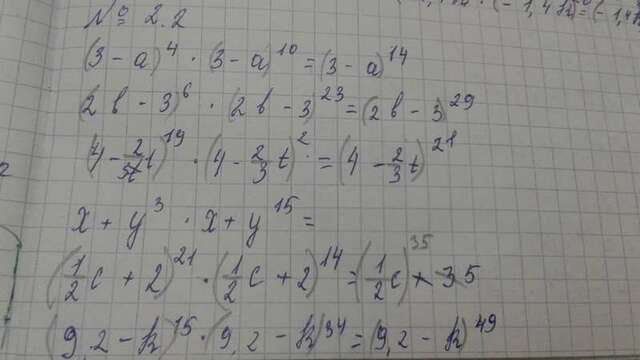 № 2.2
(3 - a)⁴ · (3 - a)¹⁰ = (3 - a)¹⁴
(2b - 3)⁶ · (2b - 3)²³ = (2b - 3)²⁹
(4 - 2/3 t)¹⁹ · (4 - 2/3 t)² = (4 - 2/3 t)²¹
x + y³ · x + y¹⁵ =
(1/2 c + 2)²¹ · (1/2 c + 2)¹⁴ = (1/2 c)³⁵ + 35
(9,2 - k)¹⁵ · (9,2 - k)³⁴ = (9,2 - k)⁴⁹